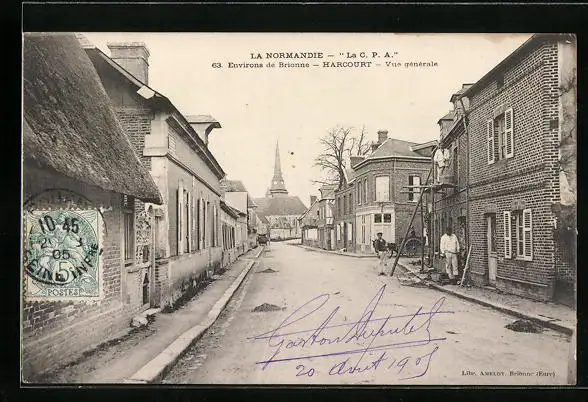 LA NORMANDIE — "La C. P. A."
63. Environs de Brionne — HARCOURT — Vue générale
10 45
05
POSTES
Gaston
20 Août 1905
Libr. AMELOT, Brionne (Eure)